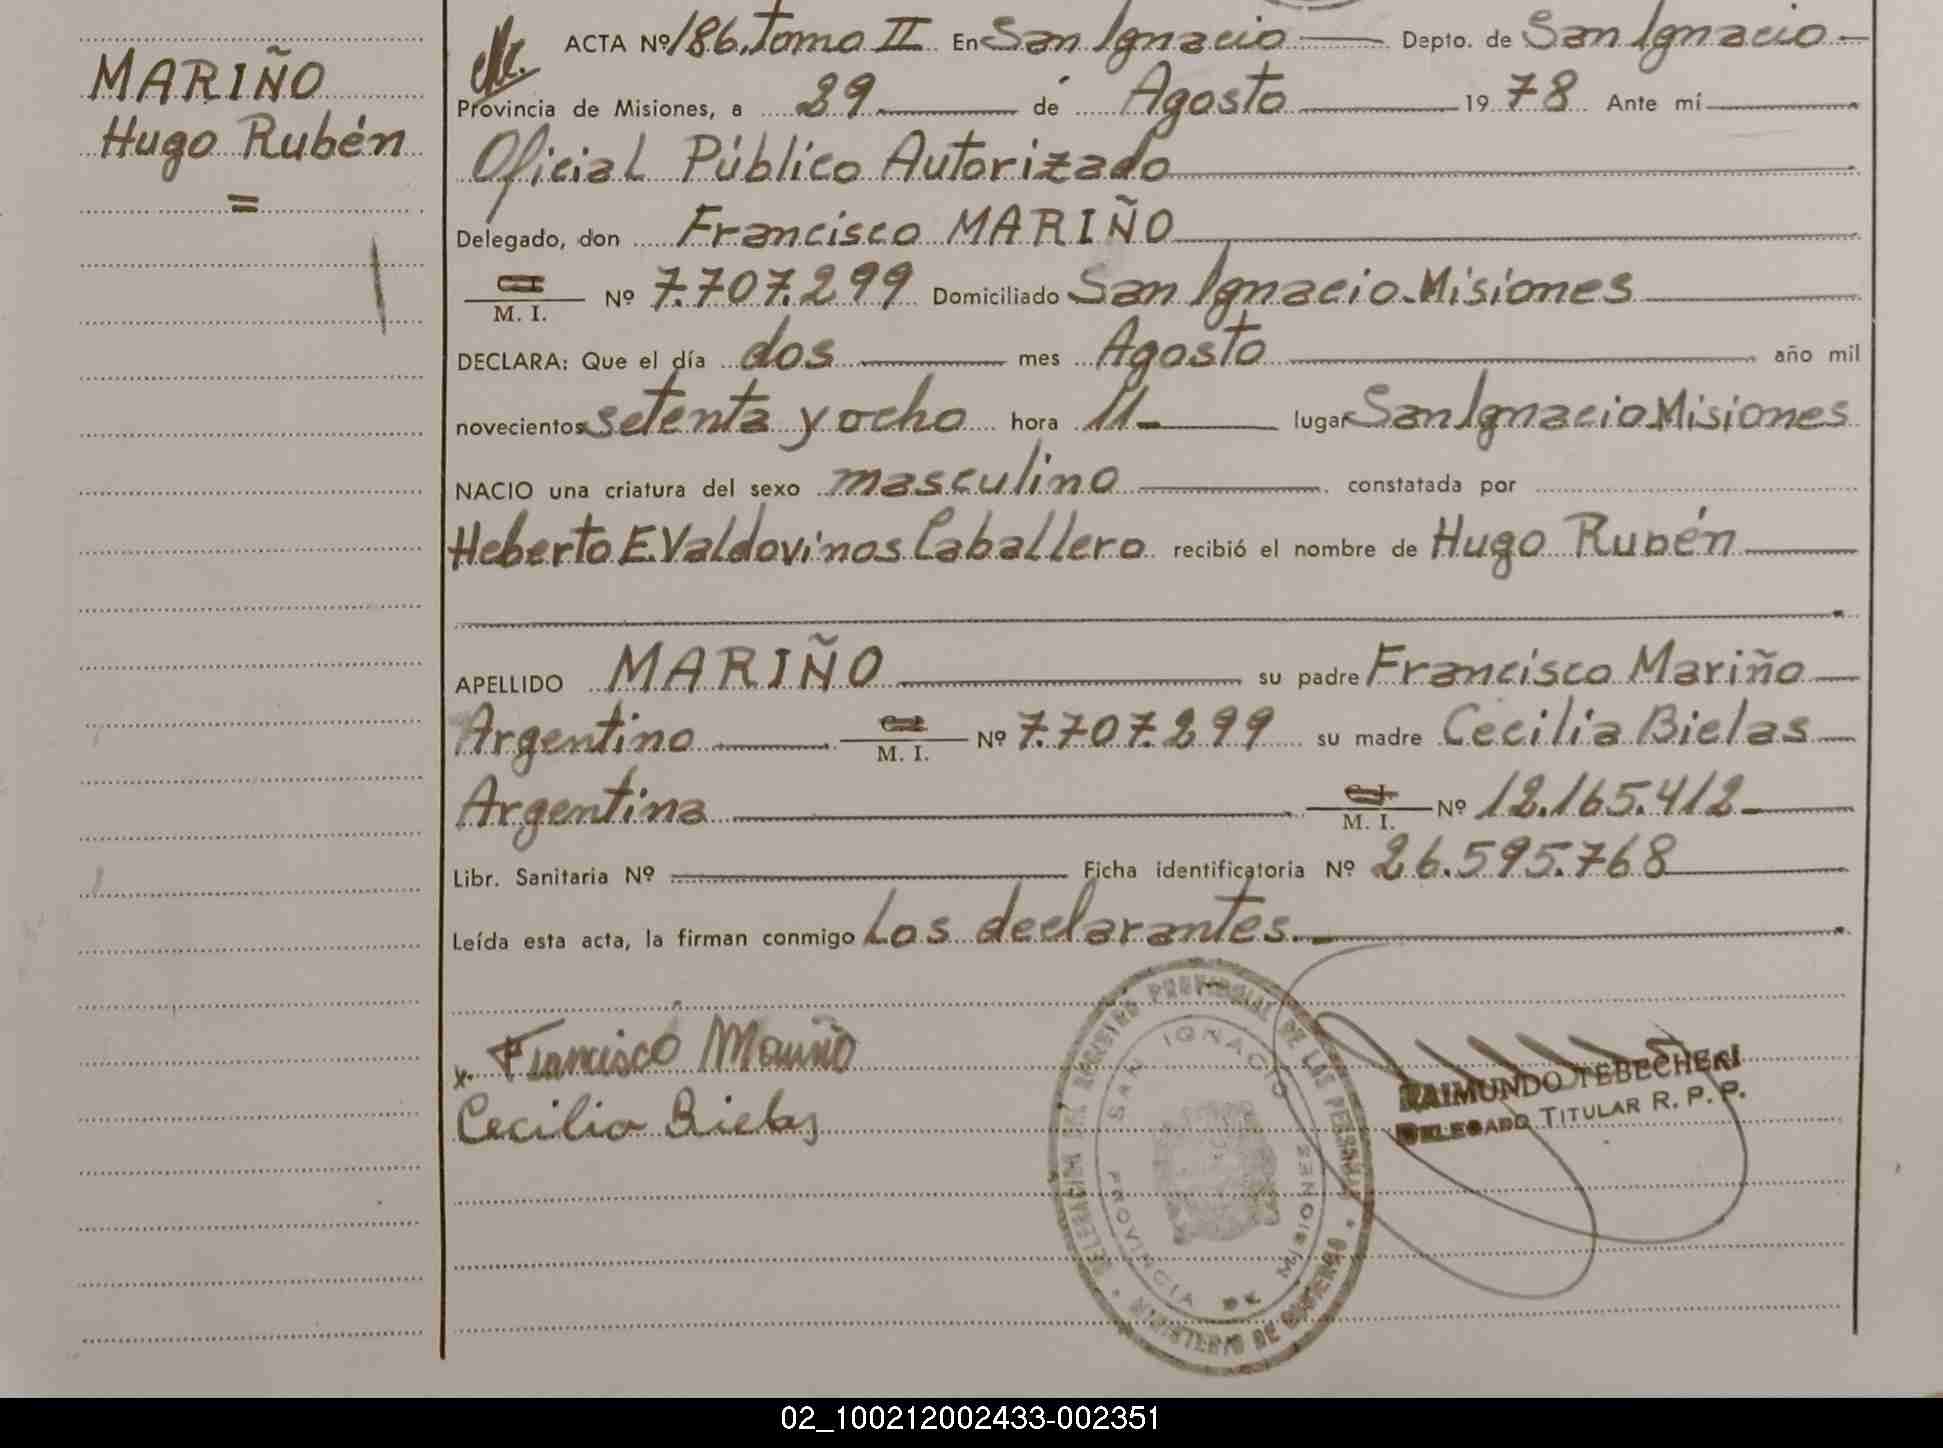 MARIÑO
Hugo Rubén
=
ACTA Nº 186. Tomo II En San Ignacio Depto. de San Ignacio
Provincia de Misiones, a 29 de Agosto 19 78 Ante mí
Oficial Público Autorizado
Delegado, don Francisco MARIÑO
C.I. M. I. Nº 7.707.299 Domiciliado San Ignacio-Misiones
DECLARA: Que el día dos mes Agosto año mil
novecientos setenta y ocho hora 11- lugar San Ignacio Misiones
NACIO una criatura del sexo masculino constatada por
Heberto E. Valdovinos Caballero recibió el nombre de Hugo Rubén
APELLIDO MARIÑO su padre Francisco Mariño
Argentino C.I. M. I. Nº 7.707.299 su madre Cecilia Bielas
Argentina C.I. M. I. Nº 12.165.412
Libr. Sanitaria Nº Ficha identificatoria Nº 26.595.768
Leída esta acta, la firman conmigo Los declarantes.
x. Francisco Mariño
Cecilia Bielas
DELEGACION DEL REGISTRO PROVINCIAL DE LAS PERSONAS
MINISTERIO DE GOBIERNO
SAN IGNACIO
PROVINCIA DE MISIONES
RAIMUNDO TEBECHERI
DELEGADO TITULAR R. P. P.
02_100212002433-002351